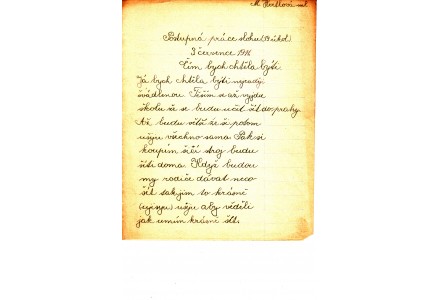 M. Herštová ml.
Postupná práce slohu (3 úkol)
3 července 1946
Čím bych chtěla býti.
Já bych chtěla býti nejraději
švadlenou. Těším se až vyjdu
školu že se budu učit šít do prahy.
Až budu větší že si potom
ušiju všechno sama. Pak si
koupím šicí stroj budu
šíti doma. Když budou
my rodiče dávat neco
šít tak jim to krásně
ušiju aby věděli
jak umím krásně šít.